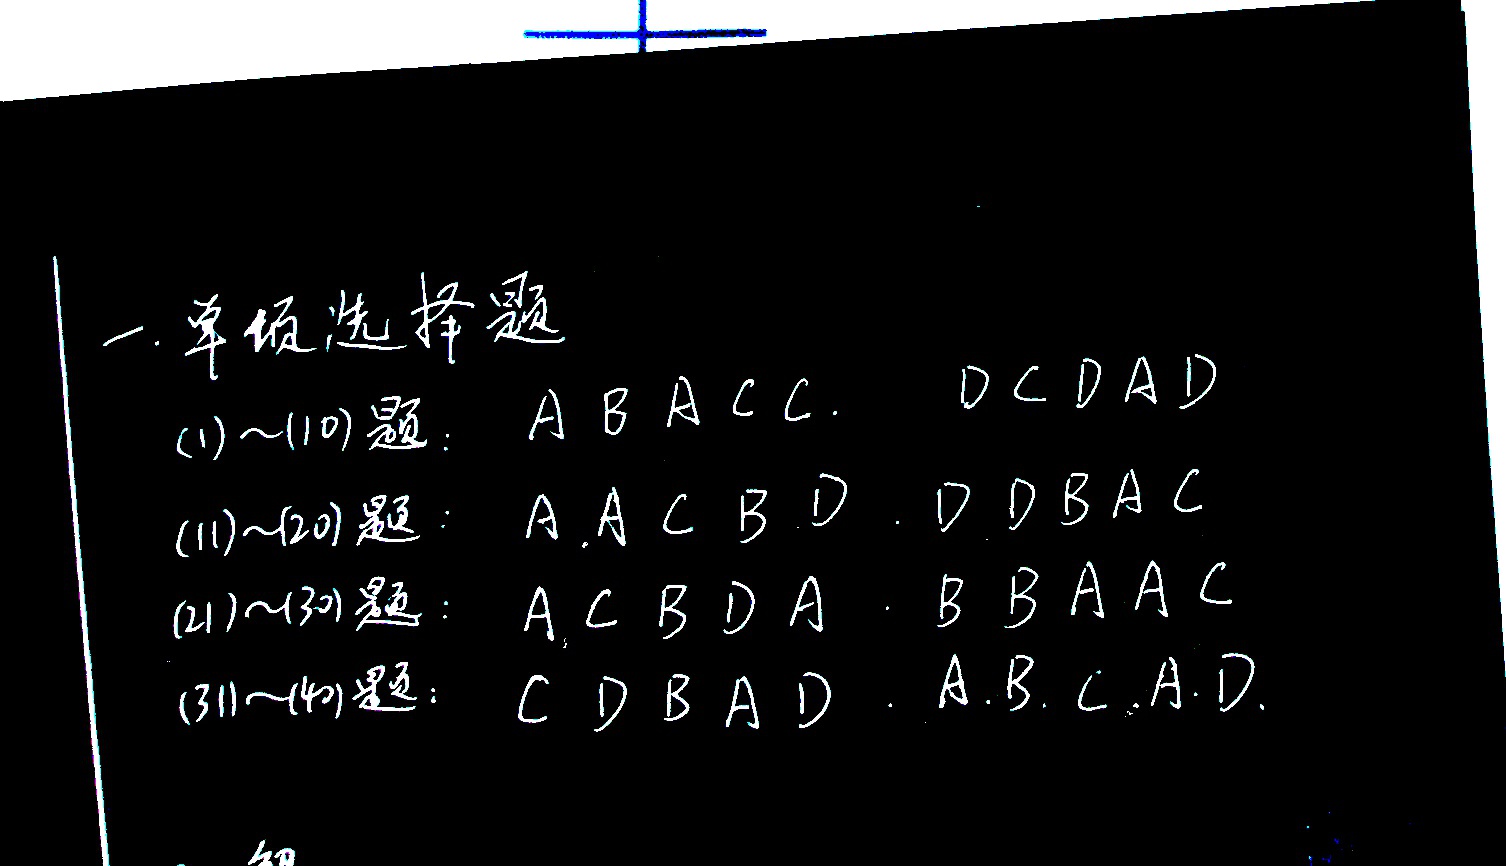 一.单项选择题
(1)~(10)题: A B A C C. D C D A D
(11)~(20)题: A.A C B.D. D D B A C
(21)~(30)题: A.C B D A. B B A A C
(31)~(40)题: C D B A D. A.B.C.A.D.